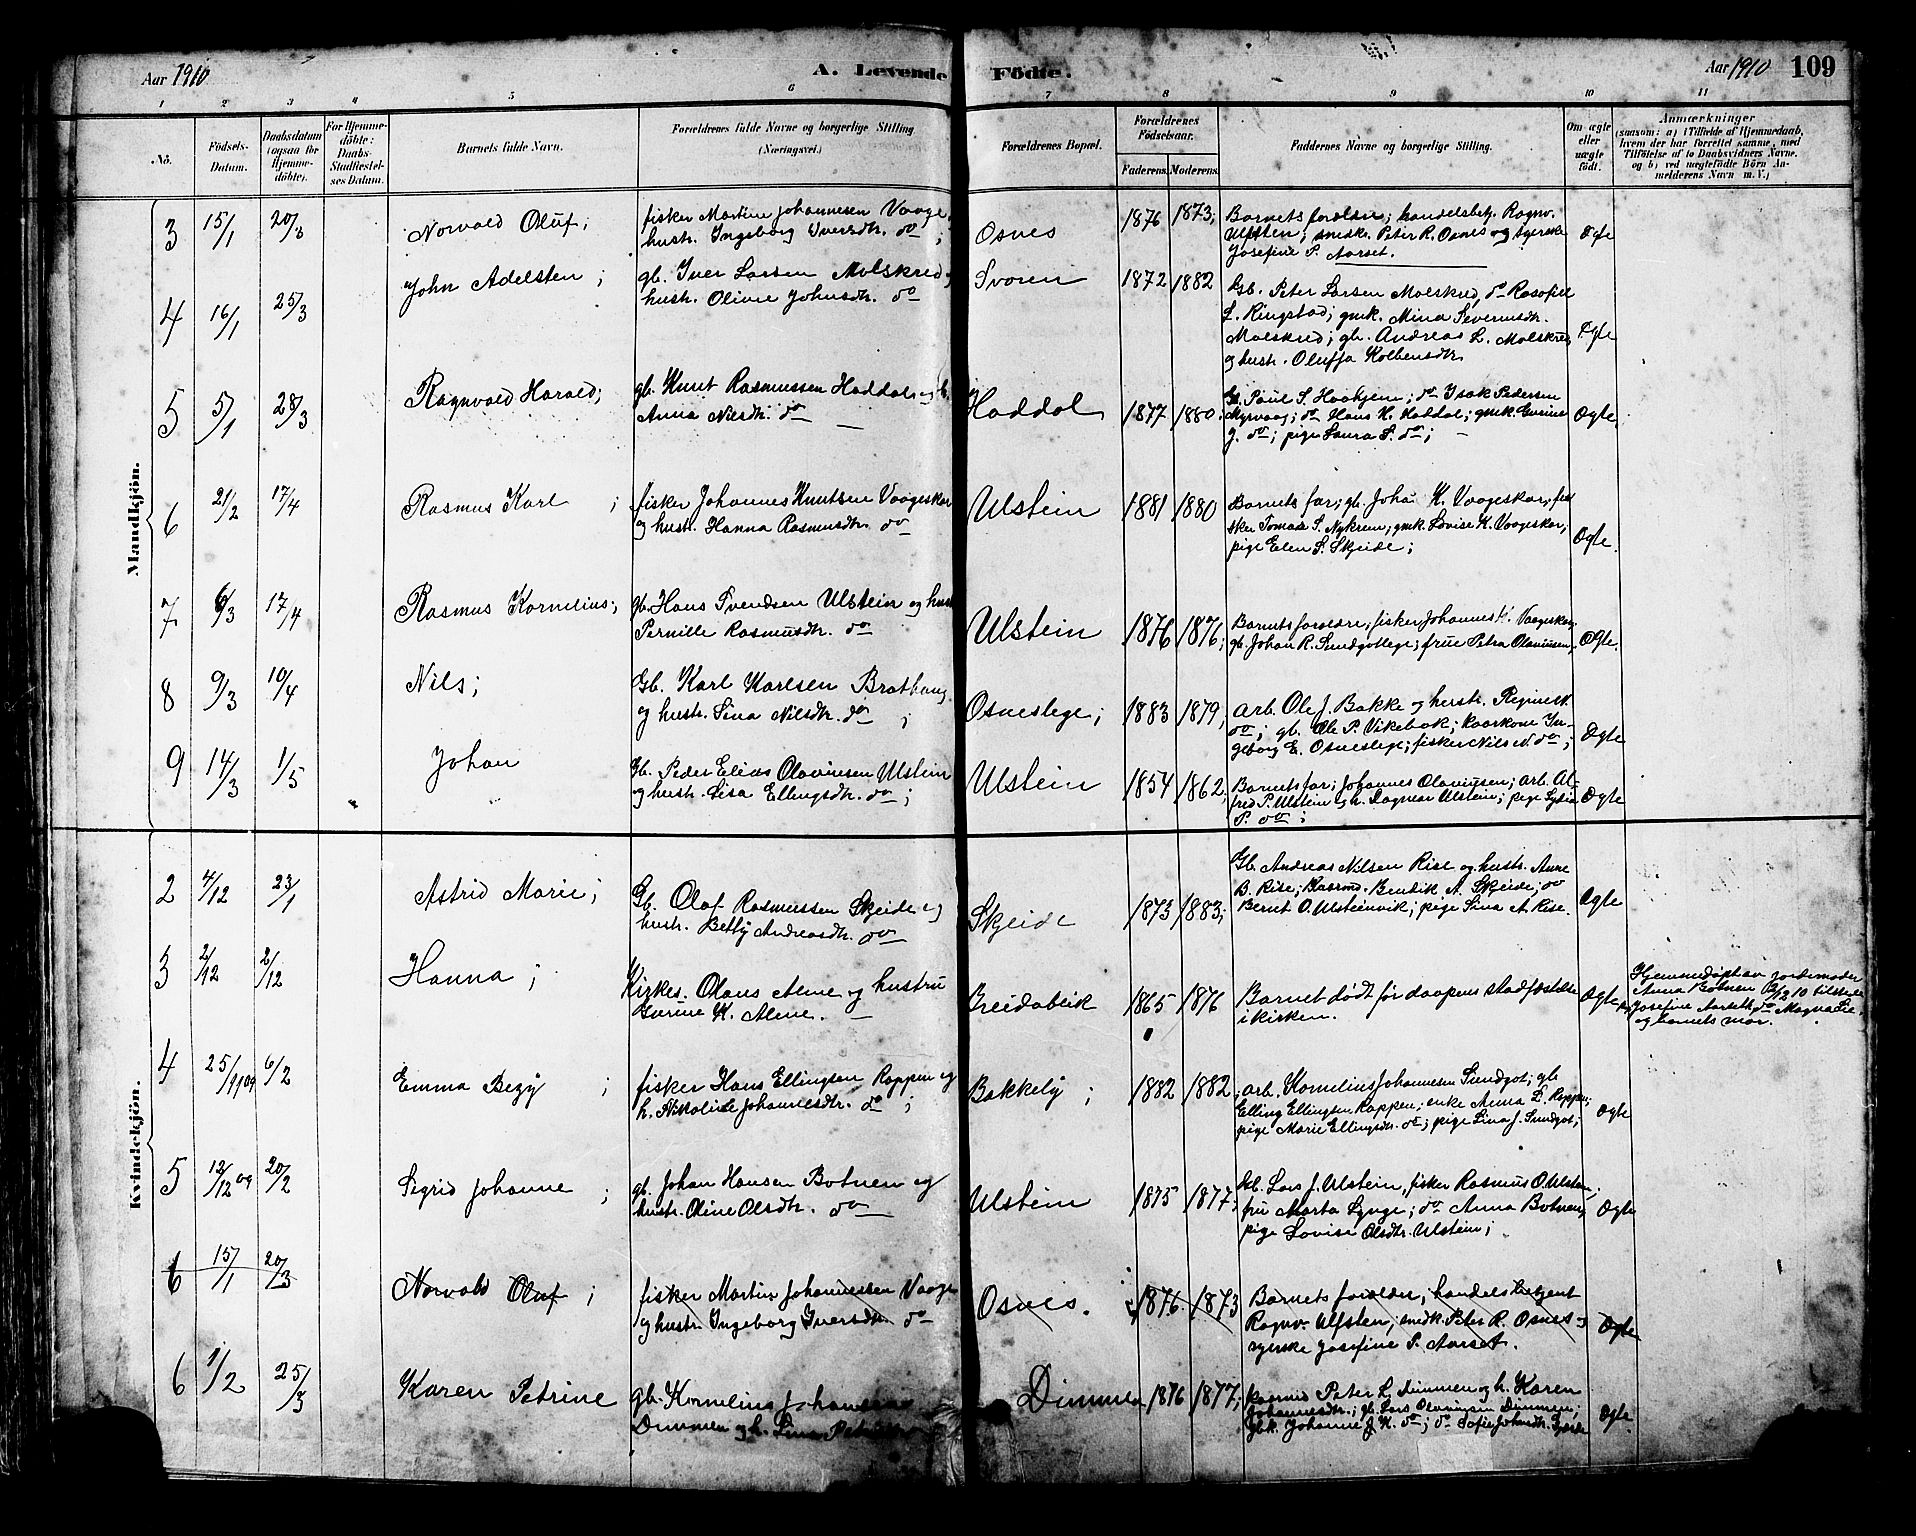 Aar 1910. A. Levende Födte. Aar 1910 109
1 2 3 4 5 6 7 8 9 10 11
No.
Födsels-
Datum.
Daabsdatum
(ogsaa for
Hjemme-
döbte).
For Hjemme-
döbte:
Daabs-
Stadfæstel-
ses Datum.
Barnets fulde Navn.
Forældrenes fulde Navne og borgerlige Stilling
(Næringsvei.)
Forældrenes Bopæl.
Forældrenes
Födselsaar.
Faderens. Moderens.
Faddernes Navne og borgerlige Stilling.
Om ægte
eller
uægte
født.
Anmærkninger
(saasom: a) i Tilfælde af Hjemmedaab,
hvem der har forrettet samme, med
Tilföielse af to Daabsvidners Navne,
og b) ved uægtefödte Börn An-
melderens Navn m. V.)
Mandkjön.
3 15/1 20/3 Norvald Oluf;
fisker Martin Johannesen Vaage,
hustr. Ingeborg Iversdtr. do;
Osnes 1876 1873;
Barnets forældre; handelsbetj. Ragnv.
Ulfsten; snedk. Peter R. Osnes og syerske
Josefine P. Aarset.
Ægte
4 16/1 25/3 John Adelsten;
gb. Iver Larsen Molskred,
hustr. Olivie Johnsdtr. do
Svoren 1872 1882
Gb. Peter Larsen Molskred, do
L. Ringstad; gmk. Mina Severinsdtr.
Molskred; gb. Andreas L. Molskred
og hustr. Oluffa Kolbensdtr.
Ægte
5 5/1 28/3 Ragnvald Harald;
gb. Knut Rasmussen Haddal og h.
Anna Nilsdtr. do
Haddal 1877 1880;
Gb. Paul S. Haahjem; do Isak Pedersen
Myrvaag; do Hans K. Haddal; gmk. Gurine
J. do; pige Laura S. do;
Ægte
6 21/2 17/4 Rasmus Karl;
fisker Johannes Knutsen Vaageskar
og hustr. Hanna Rasmusdtr. do
Ulstein 1881 1880
Barnets far; gb. Joha K. Vaageskar; fi-
sker Tomas S. Nykrem; gmk. Lovise K. Vaageskar;
pige Elen S. Skjeide;
Ægte
7 6/3 17/4 Rasmus Kornelius;
gb. Hans Svendsen Ulstein og hustr.
Pernille Rasmusdtr. do
Ulstein 1876 1876;
Barnets forældre; fisker Johannes K. Vaageskar;
gb. Johan R. Sundgotlege; frue Petra Olaviusen,
Ægte.
8 9/3 10/4 Nils;
Gb. Karl Karlsen Brathaug
og hustr. Sina Nilsdtr. do;
Osneslege; 1883 1879;
Arb. Ole J. Bakke og hustr. Regine N.
do; gb. Ole P. Vikebak; kaarkone In-
geborg E. Osneslege; fisker Nils N. do;
Ægte
9 14/3 1/5 Johan
Gb. Peder Elias Olaviusen Ulstein
og hustr. Lisa Ellingsdtr. do;
Ulstein 1854 1862;
Barnets far; Johannes Olaviusen; arb. Al-
fred P. Ulstein og h. Dagmar Ulstein; pige Lydia
P. do;
Ægte
Kvindekjön.
2 4/12 23/1 Astrid Marie;
Gb. Olaf Rasmussen Skjeide og
hustr. Betty Andreasdtr. do
Skjeide 1873 1883;
Gb. Andreas Nilsen Rise og hustr. Anne
B. Rise; kaarmd. Bendik A. Skjeide; do
Bernt O. Ulsteinvik; pige Sina A. Rise.
Ægte
3 2/12 2/12 Hanna;
Kirkes. Olaus Alme og hustru
Gurine K. Alme.
Breidablik 1865 1876
Barnet dødt før daapens stadfæstelse
i kirken.
Ægte
Hjemmedøpt av jordemoder
Anna Botnen 2/12 10 tilstede
Josefine Aarseth, do Magna Lie
og barnets mor.
4 25/11 09 6/2 Emma Bezy;
fisker Hans Ellingsen Rappen og
h. Nikoline Johannesdtr. do;
Bakkely; 1882 1882;
arb. Kornelius Johannesen Sundgot; gb.
Elling Ellingsen Rappen; enke Anna L. Rappen;
pige Marie Ellingsdtr. do; pige Lina J. Sundgot;
Ægte
5 12/12 09 20/2 Sigrid Johanne;
gb. Johan Hansen Botnen og
hustr. Oline Olsdtr. do
Ulstein 1875 1877;
Kb. Lars J. Ulstein, fisker Rasmus O. Ulstein;
fru Marta Lynge; do Anna Botnen;
pige Lovise Olsdtr. Ulstein;
Ægte
6 15/1 20/3 Norvald Oluf;
fisker Martin Johannessen Vaage
og hustr. Ingeborg Iversdtr. do
Osnes. 1876. 1873
Barnets forældre; handelsbetjent
Ragnv. Ulfsten; snedk. Peter R. Osnes og
syerske Josefine P. Aarset.
Ægte
6 1/2 25/3 Karen Petrine
gb. Kornelius Johannesen
Dimmen og h. Lina
Dimmen 1876 1877;
kaarmd. Peter L. Dimmen og h. Karen
Johannesdtr.; gb. Lars Olaviusen Dimmen;
gbk. Johanne J. K. do; do Sofie Johnsdtr.
Ægte.